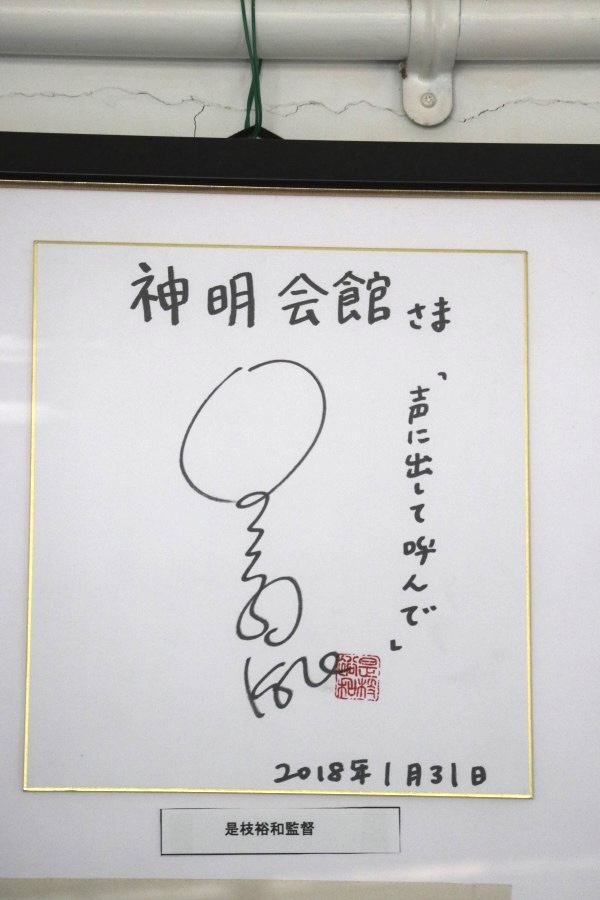 神明会館さま
「声に出して呼んで」
是枝裕和
2018年1月31日
是枝裕和監督